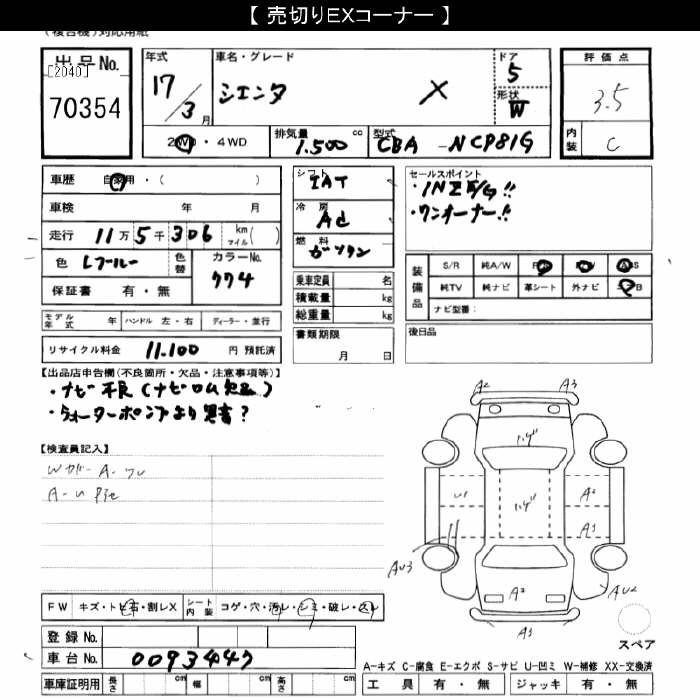 【 売切りEXコーナー 】
(複合機)対応用紙
出品No.
[2040]
70354
年式
17/3月
車名・グレード
シエンタ X
ドア
5
形状
W
評価点
3.5
内装
C
2WD・4WD
排気量
1.500 cc
型式
CBA - NCP81G
車歴 自家用・( )
車検 年 月
走行 11万5千306 km マイル( )
色 Lブルー
色替
カラーNo.
774
保証書 有・無
モデル年式 年
ハンドル 左・右
ディーラー・並行
リサイクル料金 11.100 円 預託済
シフト
IAT
冷房
AC
燃料
ガソリン
乗車定員 名
積載量 kg
総重量 kg
書類期限
月 日
セールスポイント
・1NZ E/G!!
・ワンオーナー!!
装備品
S/R 純A/W P/S P/W ABS
純TV 純ナビ 革シート 外ナビ エアB
ナビ型番:
後日品
【出品店申告欄(不良箇所・欠品・注意事項等)】
・ナビ不良(ナビロム欠品)
・ウォーターポンプより異音?
【検査員記入】
Wカバー A-
A-U
FW キズ・トビ石・割レX
シート内装 コゲ・穴・汚レ・シミ・破レ・スレ
登録No.
車台No. 0093447
車庫証明用 長さ cm 幅 cm 高さ cm
A2 A3
U1
A2
A1
AU3
A2
AU2
A3
スペア
A-キズ C-腐食 E-エクボ S-サビ U-凹ミ W-補修 XX-交換済
工具 有・無 ジャッキ 有・無